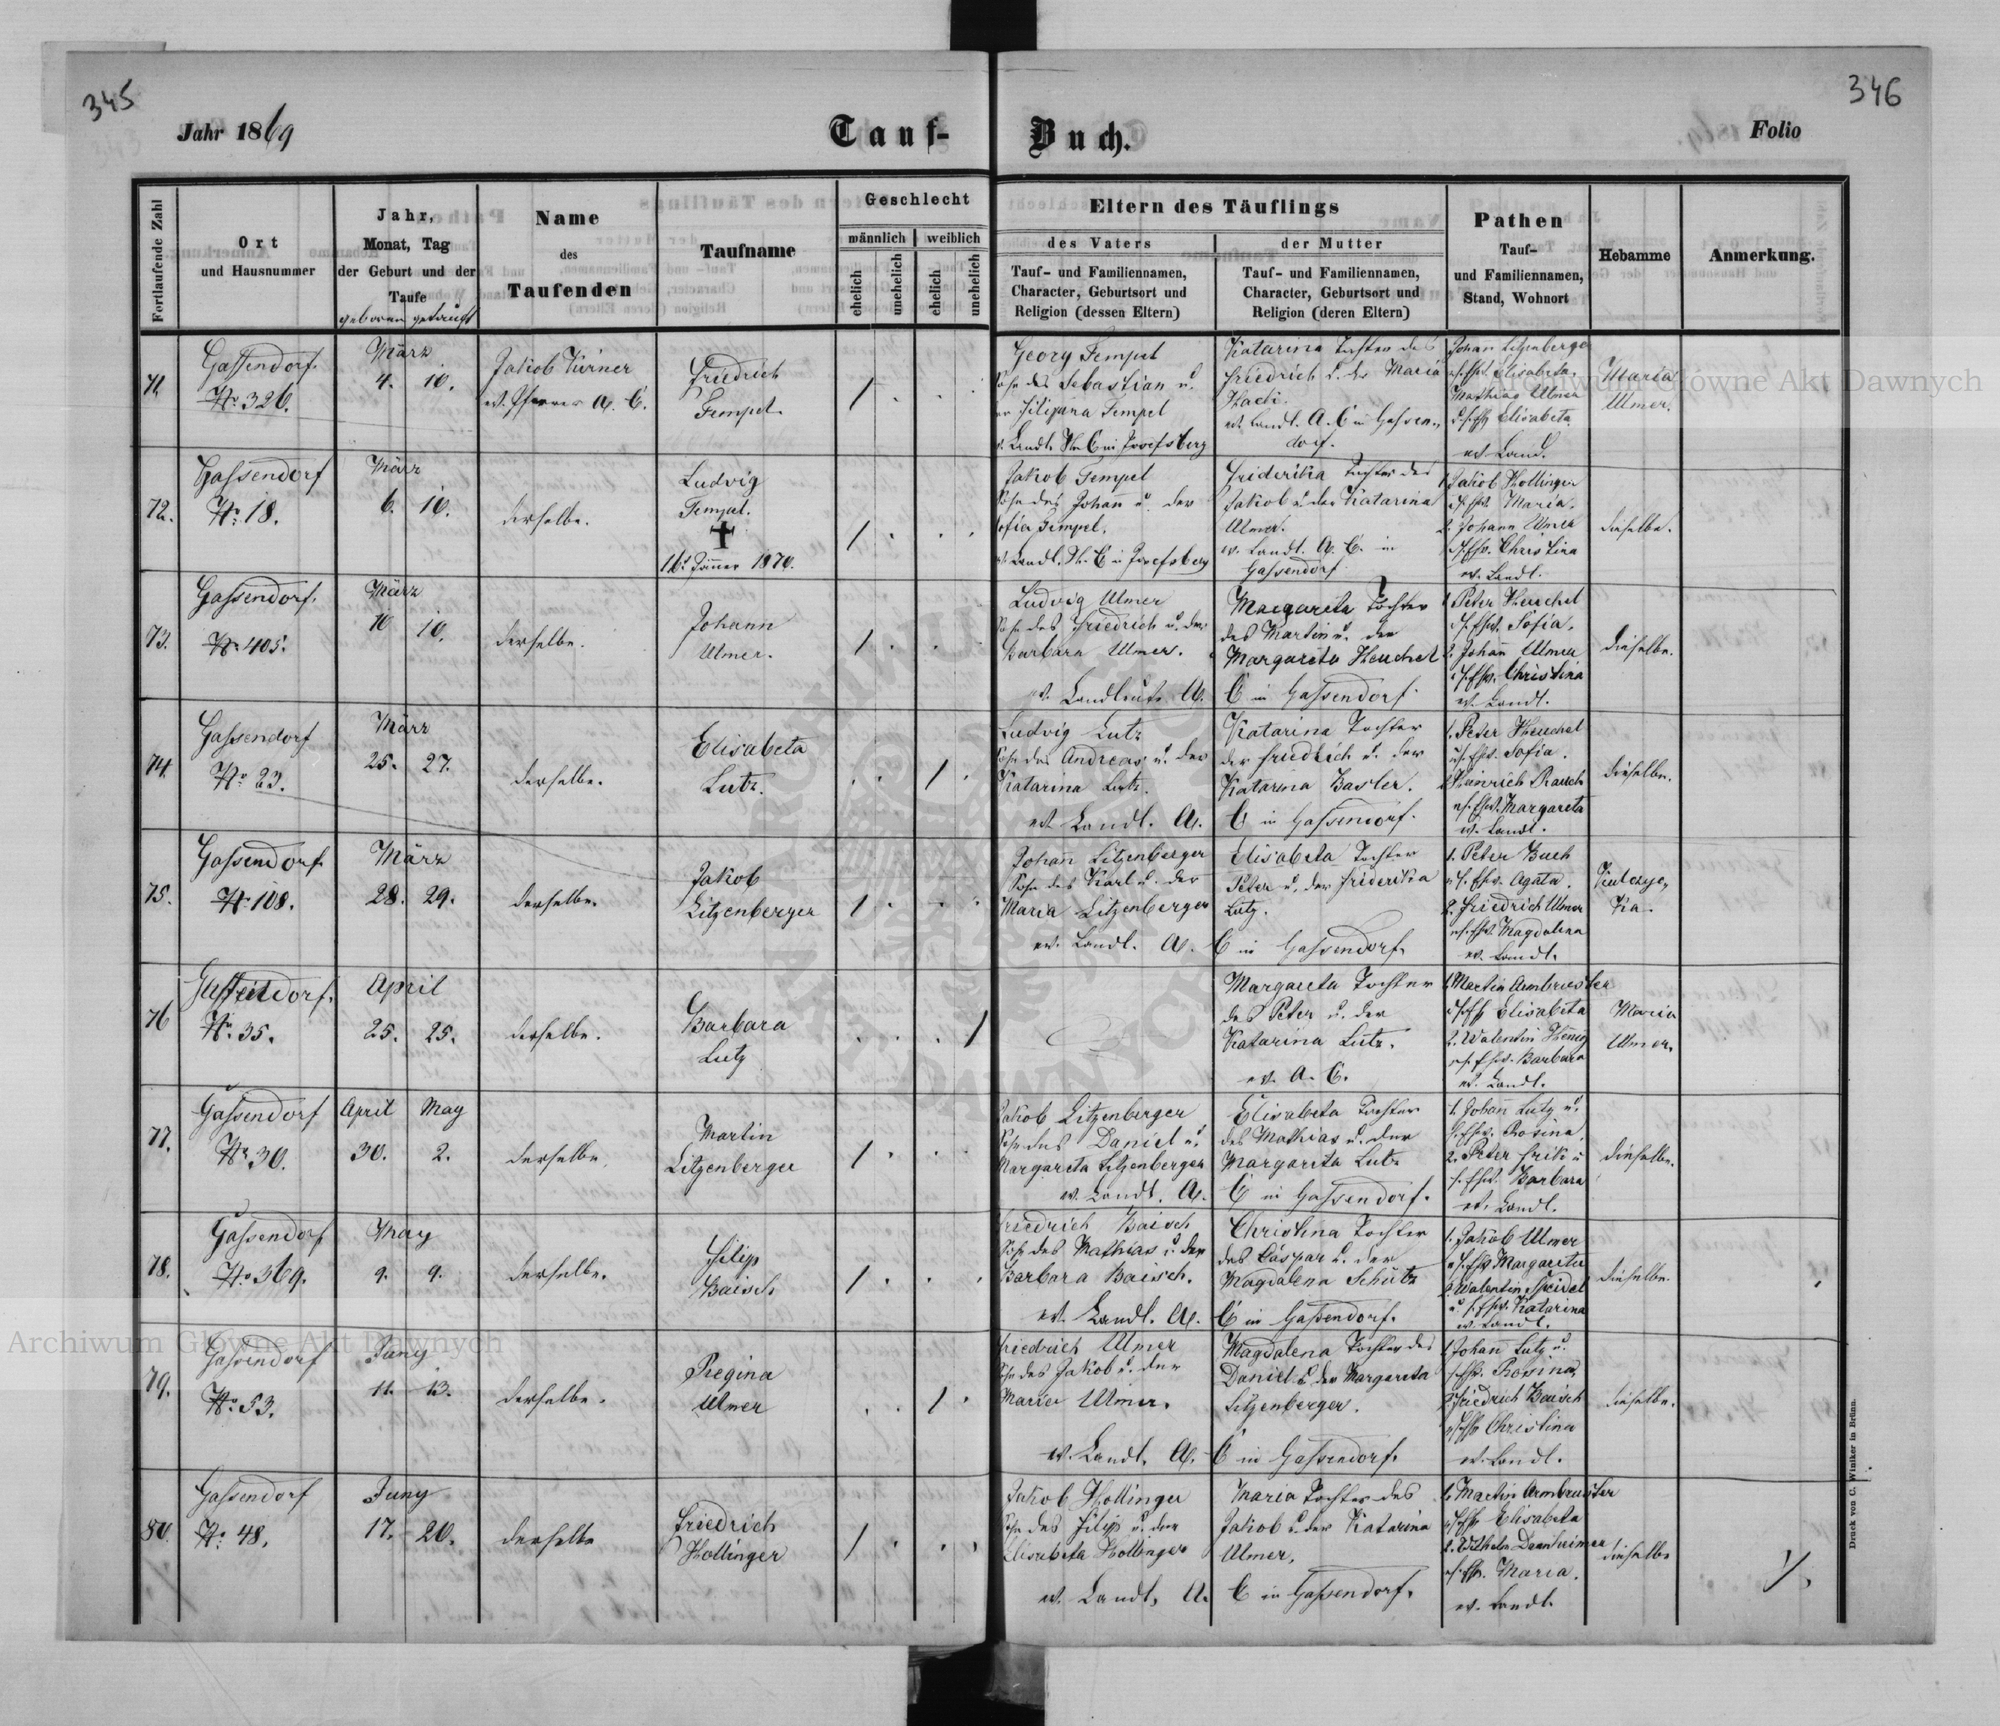 345
346
Jahr 1869
Tauf-
Buch.
Folio
Fortlaufende Zahl
Ort
und Hausnummer
Jahr,
Monat, Tag
der Geburt und der
Taufe
geboren getauft
Name
des
Taufenden
Taufname
Geschlecht
männlich weiblich
ehelich unehelich ehelich unehelich
Eltern des Täuflings
des Vaters
Tauf- und Familiennamen,
Character, Geburtsort und
Religion (dessen Eltern)
der Mutter
Tauf- und Familiennamen,
Character, Geburtsort und
Religion (deren Eltern)
Pathen
Tauf-
und Familiennamen,
Stand, Wohnort
Hebamme
Anmerkung.
71.
Gassendorf.
No 326.
März
4. 10.
Jakob Kürner
ev. Pfarrer A. C.
Friedrich
Tempel.
Georg Tempel
Sohn des Sebastian u.
Filipina Tempel
Landl. H. C in Josefsberg
Katarina Tochter des
Friedrich u. der Maria
ev. Landl. A. C in Gassen-
dorf.
Johann Litzenberger
u. s. Ehw. Elisabeta.
Mathias Ulmer
u. s. Ehw. Elisabeta
ev. Landl.
Maria
Ulmer.
72.
Gassendorf
No 18.
März
6. 10.
derselbe.
Ludvig
Tempel.
16. Jänner 1870.
Jakob Tempel
Sohn des Johann u. der
Sofia Tempel.
ev. Landl. H. C in Josefsberg
Friderika Tochter des
Jakob u. der Katarina
Ulmer.
ev. Landl. A. C. in
Gassendorf.
1. Jakob Hollinger
u. s. Ehw. Maria.
2. Johann Ulmer
u. s. Ehw. Christina
ev. Landl.
dieselbe.
73.
Gassendorf.
No 405.
März
10 10.
derselbe.
Johann
Ulmer.
Ludvig Ulmer
Sohn des Friedrich u. der
Barbara Ulmer.
ev. Landleute A.
Margareta Tochter
des Martin u. der
Margareta Heuchel
C in Gassendorf.
1. Peter Heuchel
u. s. Ehw. Sofia.
2. Johann Ulmer
u. s. Ehw. Christina
ev. Landl.
dieselbe.
74.
Gassendorf
No 23.
März
25. 27.
derselbe.
Elisabeta
Lutz.
Ludvig Lutz
Sohn des Andreas u. der
Katarina Lutz.
ev. Landl. A.
Katarina Tochter
der Friedrich u. der
Katarina Basler.
C in Gassendorf.
1. Peter Heuchel
u. s. Ehw. Sofia.
2. Heinrich Rauch
u. s. Ehw. Margareta
ev. Landl.
dieselbe.
75.
Gassendorf.
No 108.
März
28. 29.
derselbe.
Jakob
Litzenberger
Johann Litzenberger
Sohn des Karl u. der
Maria Litzenberger
ev. Landl. A.
Elisabeta Tochter
Peter u. der Friderika
Lutz.
C in Gassendorf.
1. Peter Buch
u. s. Ehw. Agata.
2. Friedrich Ulmer
u. s. Ehw. Magdalena
ev. Landl.
76
Gassendorf.
No. 35.
April
25. 25.
derselbe.
Barbara
Lutz
Margareta Tochter
des Peter u. der
Katarina Lutz.
ev. A. C.
1. Martin Armbruster
u. s. Ehw. Elisabeta
2. Walentin
u. s. Ehw. Barbara
ev. Landl.
Maria
Ulmer.
77.
Gassendorf
No 30.
April May
30. 2.
derselbe.
Martin
Litzenberger
Jakob Litzenberger
Sohn des Daniel u.
Margareta Litzenberger
ev. Landl. A.
Elisabeta Tochter
des Mathias u. der
Margareta Lutz
C in Gassendorf.
1. Johann Lutz u.
s. Ehw. Rosina.
2. Peter u
s. Ehw. Barbara
ev. Landl.
dieselbe.
78.
Gassendorf
No 369.
May
9. 9.
derselbe.
Filip
Baisch
Friedrich Baisch
Sohn des Mathias u. der
Barbara Baisch.
ev. Landl. A.
Christina Tochter
des Caspar u. der
Magdalena Schütz
C in Gassendorf.
1. Jakob Ulmer
u. s. Ehw. Margareta
2. Walentin Speidel
u. s. Ehw. Katarina
ev. Landl.
dieselbe.
79.
Gassendorf
No. 53.
Juny
11. 13.
derselbe.
Regina
Ulmer
Friedrich Ulmer
Sohn des Jakob u. der
Maria Ulmer.
ev. Landl. A.
Magdalena Tochter des
Daniel u. der Margareta
Litzenberger.
C in Gassendorf.
1. Johann Lutz u.
s. Ehw. Rosina
2. Friedrich Baisch
u. s. Ehw. Christina
ev. Landl.
dieselbe.
80.
Gassendorf
No. 48.
Juny
17. 20.
derselbe
Friedrich
Hollinger
Jakob Hollinger
Sohn des Filip u. der
Elisabeta Hollinger
ev. Landl. A.
Maria Tochter des
Jakob u. der Katarina
Ulmer.
C in Gassendorf.
1. Martin Armbruster
u. s. Ehw. Elisabeta
2. Wilhelm Dannheimer
u. s. Ehw. Maria.
ev. Landl.
dieselbe
Druck von C. Winiker in Brünn.
Archiwum Główne Akt Dawnych
Archiwum Główne Akt Dawnych